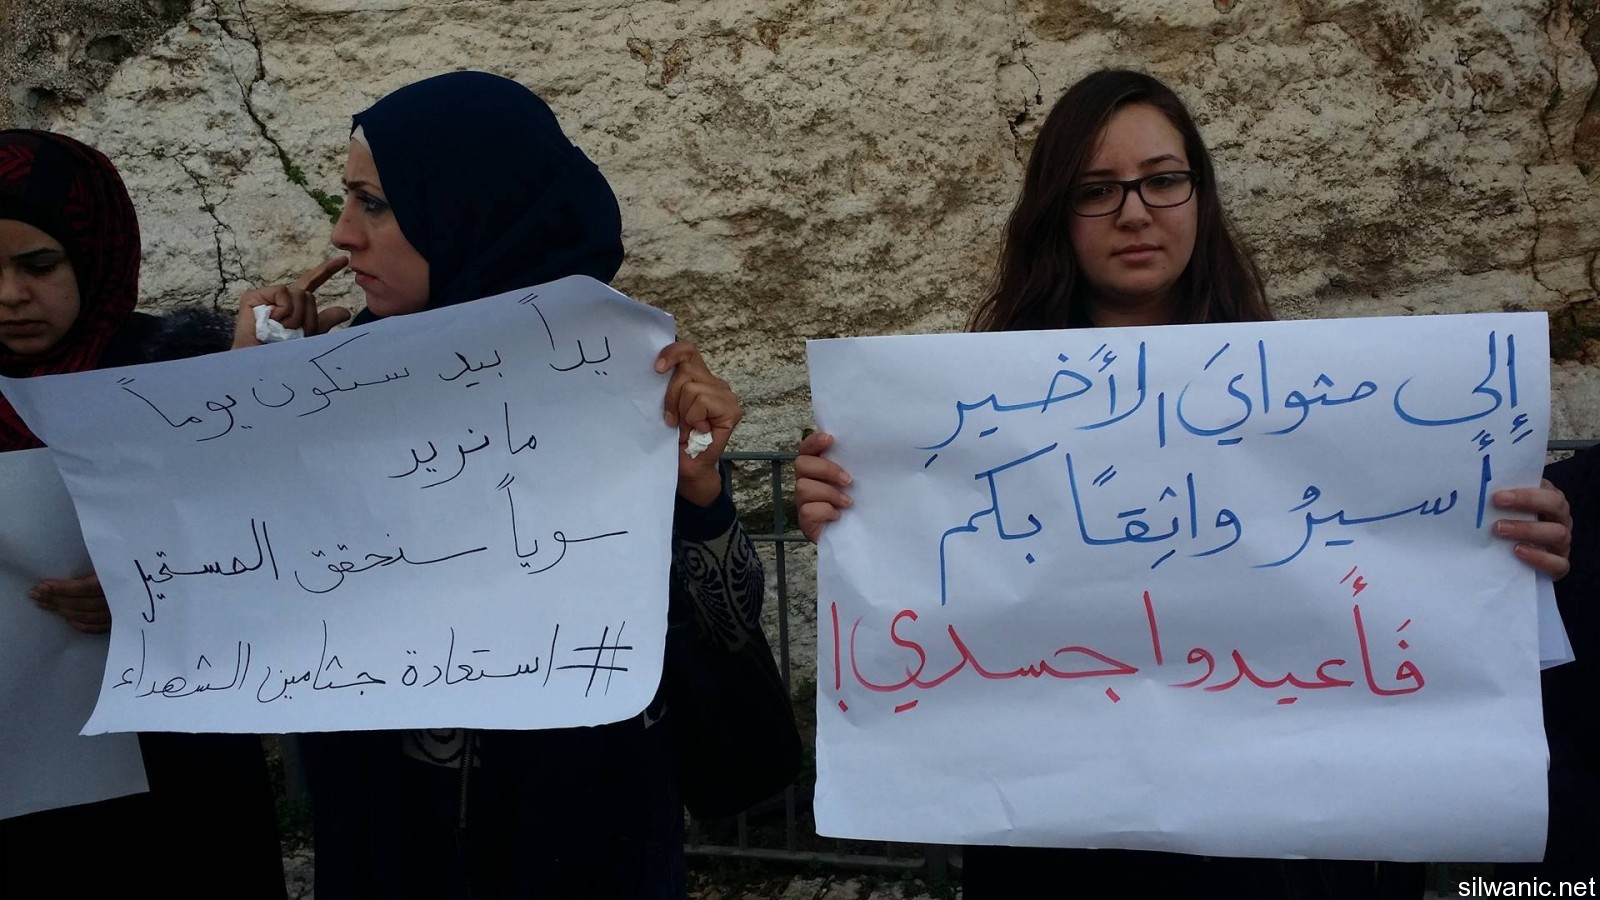 يداً بيد سنكون يوماً
ما نريد
سوياً سنحقق المستحيل
#استعادة جثامين الشهداء
إلى مثوايَ الأَخيرِ
أَسيرُ واثِقاً بكم
فَأَعيدوا جسدي!
silwanic.net